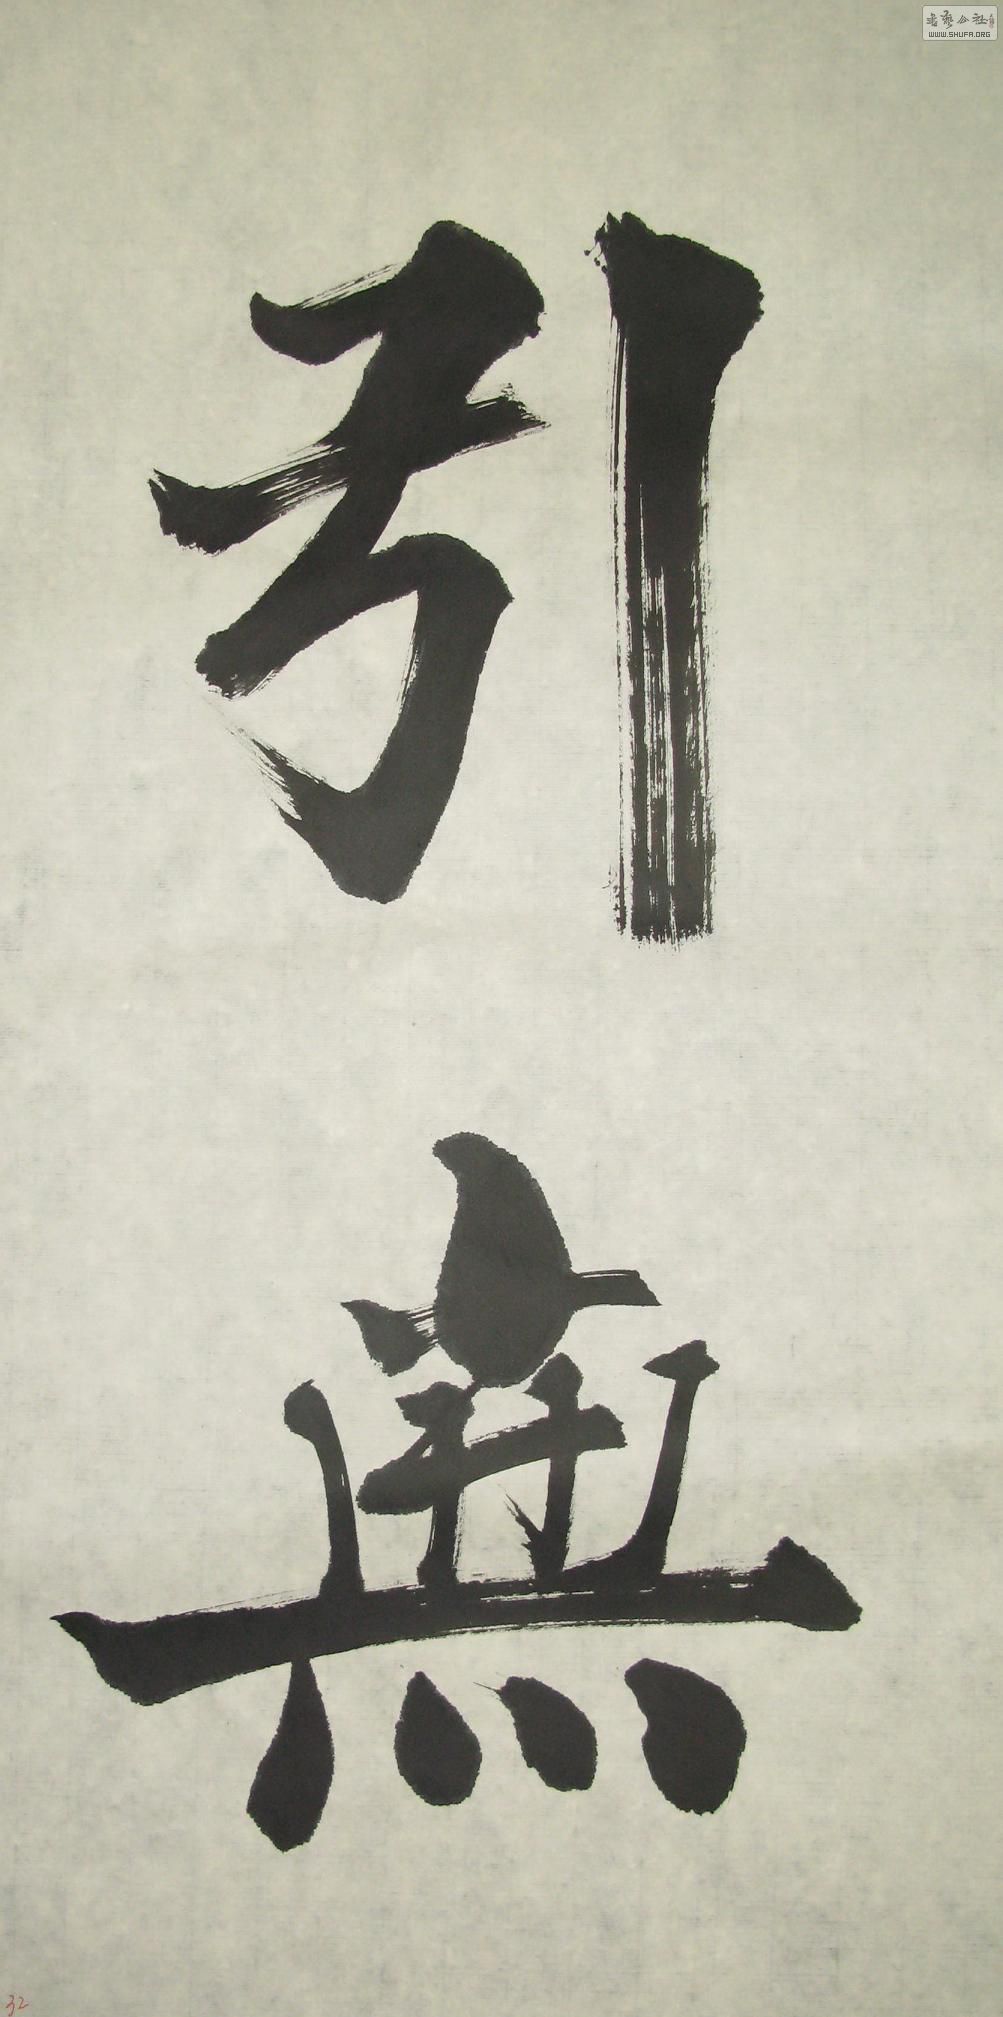 书艺公社
WWW.SHUFA.ORG
引
無
32